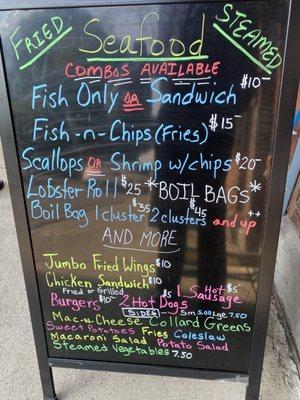 FRIED Seafood STEAMED
COMBOS AVAILABLE
Fish Only OR Sandwich $10-
Fish-n-Chips (Fries) $15-
Scallops OR Shrimp w/chips $20-
Lobster Roll $25 *BOIL BAGS*
Boil Bag 1 cluster $35 2 clusters $45 and up ++
AND MORE
Jumbo Fried Wings $10
Chicken Sandwich $10
Fried or Grilled
Burgers $10- 2 Hot Dogs $5 1 Hot Sausage $5
SIDES Sm 5.00 Lge 7.50
Mac-n-Cheese Collard Greens
Sweet Potatoes Fries Coleslaw
Macaroni Salad Potato Salad
Steamed Vegetables 7.50